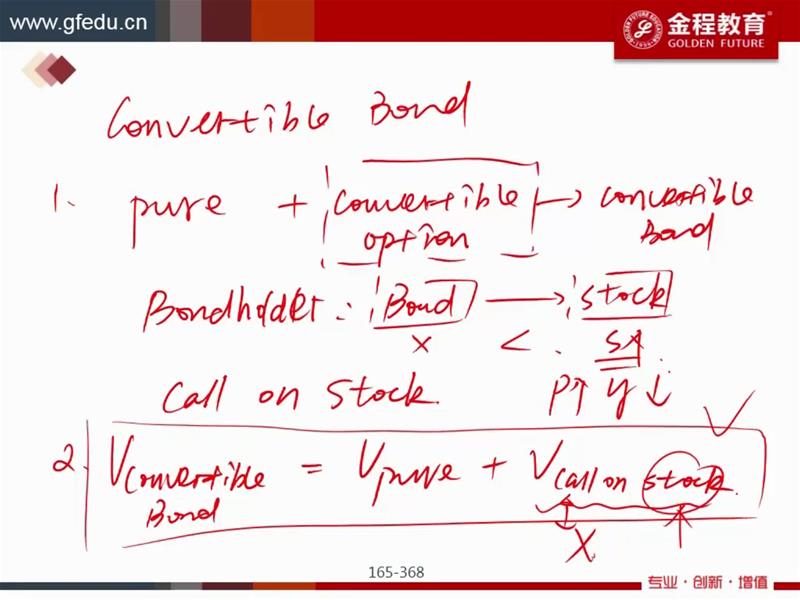 www.gfedu.cn
金程教育
GOLDEN FUTURE
Convertible Bond
1. pure + convertible option → convertible Bond
Bondholder : Bond → stock
X < S↑
call on stock. P↑ y↓
2. V convertible Bond = V pure + V call on stock.
X ↑
165-368
专业·创新·增值